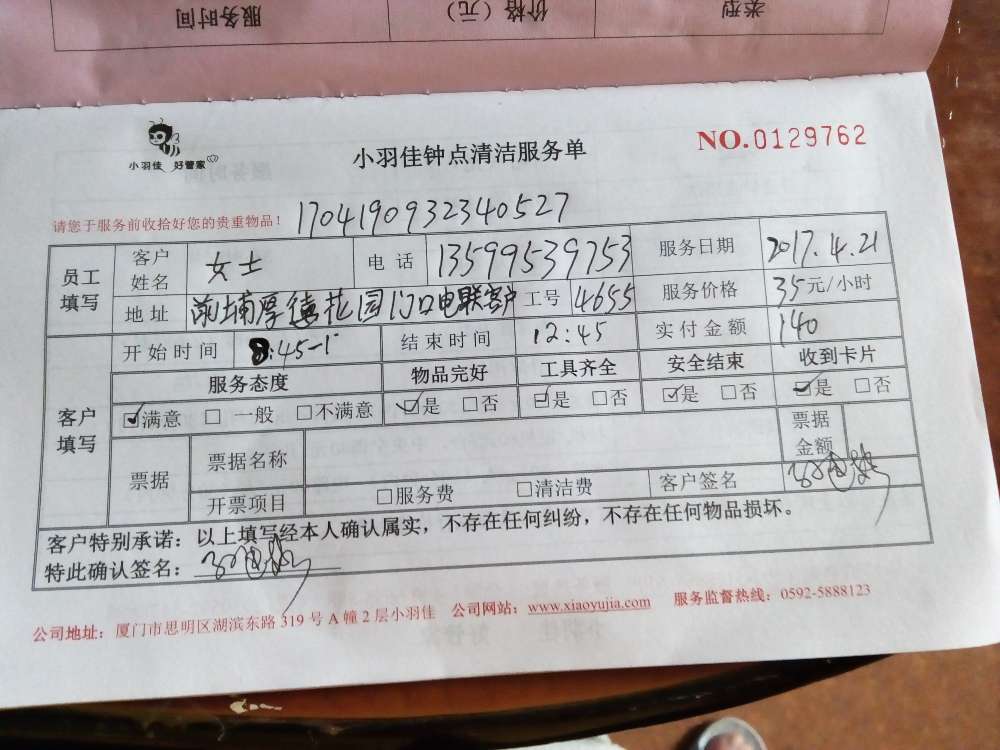 服务时间 价格（元） 类型
小羽佳 好管家
小羽佳钟点清洁服务单
NO.0129762
请您于服务前收拾好您的贵重物品！ 1704190932340527
员工填写 客户姓名 女士 电话 13599539753 服务日期 2017.4.21
地址 前埔厚德花园门口电联客户 工号 4655 服务价格 35元/小时
客户填写 开始时间 8:45 结束时间 12:45 实付金额 140
服务态度 物品完好 工具齐全 安全结束 收到卡片
☑满意 □一般 □不满意 ☑是 □否 ☑是 □否 ☑是 □否 ☑是 □否
票据 票据名称 票据金额
开票项目 □服务费 □清洁费 客户签名
客户特别承诺：以上填写经本人确认属实，不存在任何纠纷，不存在任何物品损坏。
特此确认签名：
公司地址：厦门市思明区湖滨东路 319 号 A 幢 2 层小羽佳 公司网站：www.xiaoyujia.com 服务监督热线：0592-5888123